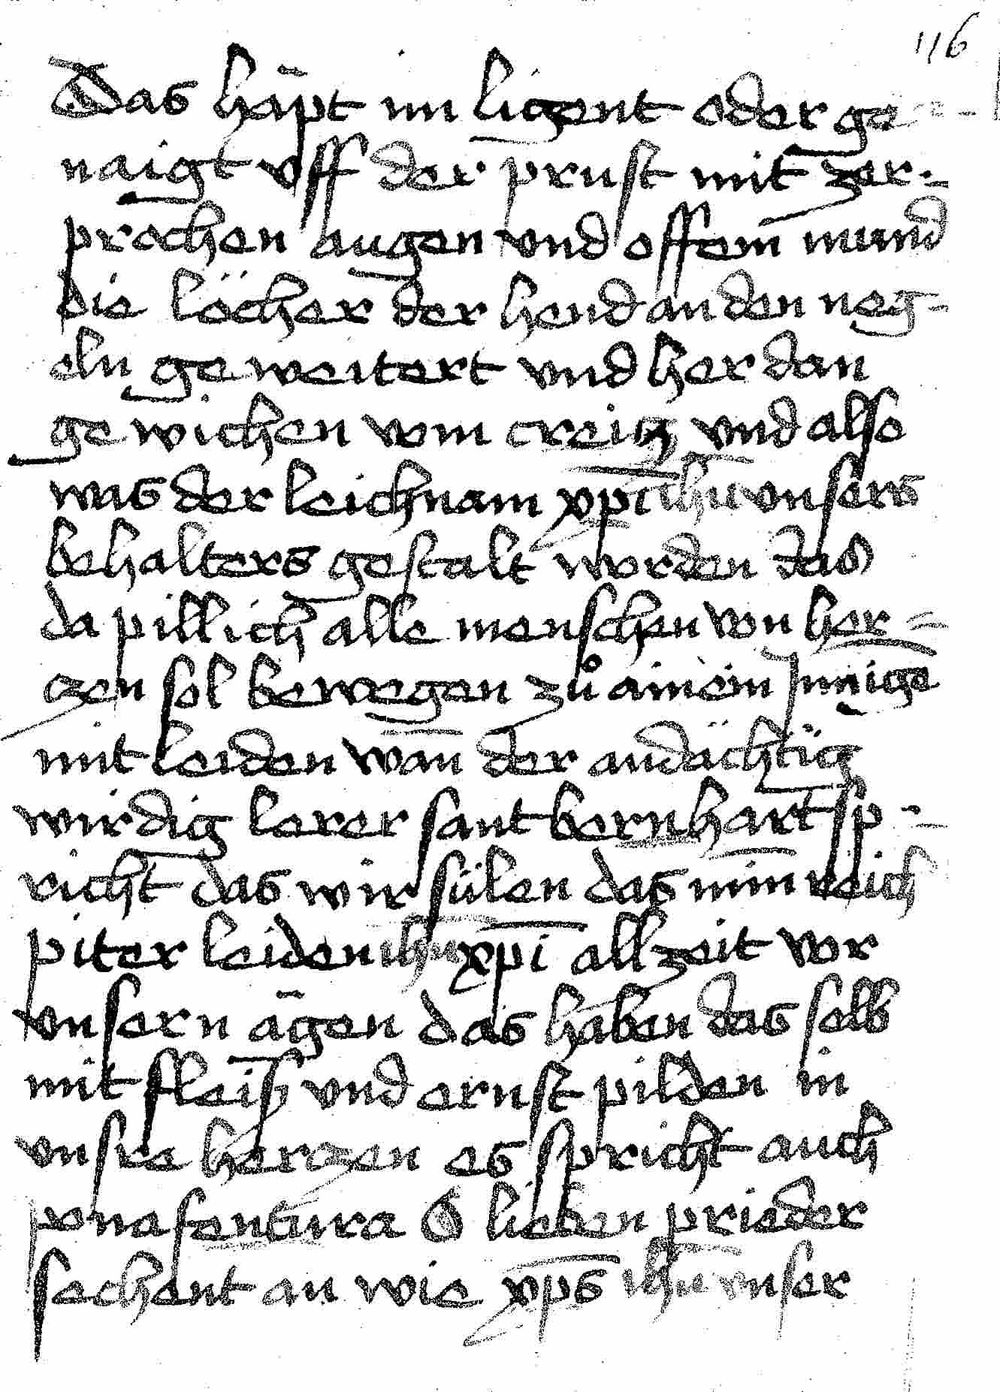 116
Das häpt im ligent oder ge=
naigt vff der prust mit zer=
prochen augen vnd offem mund
die löcher der hend an den neg=
eln geweitert vnd her dan
gewichen vom creitz vnd also
was der leichnam xpi ihu vnsers
behalters gestalt worden das
da pillich alle menschen von her=
czen sol bewegen zů ainem Jnnige
mit leiden wan der andächtig
wirdig lerer sant bernhart sp=
richt das wir sülen das min reich
piter leiden ihu xpi all zeit vor
vnsern ägen das haben das selb
mit fleiß vnd ernst pilden in
vnsre herczen es spricht auch
ponafentura O lieben prieder
sechent an wie xps ihu vnser